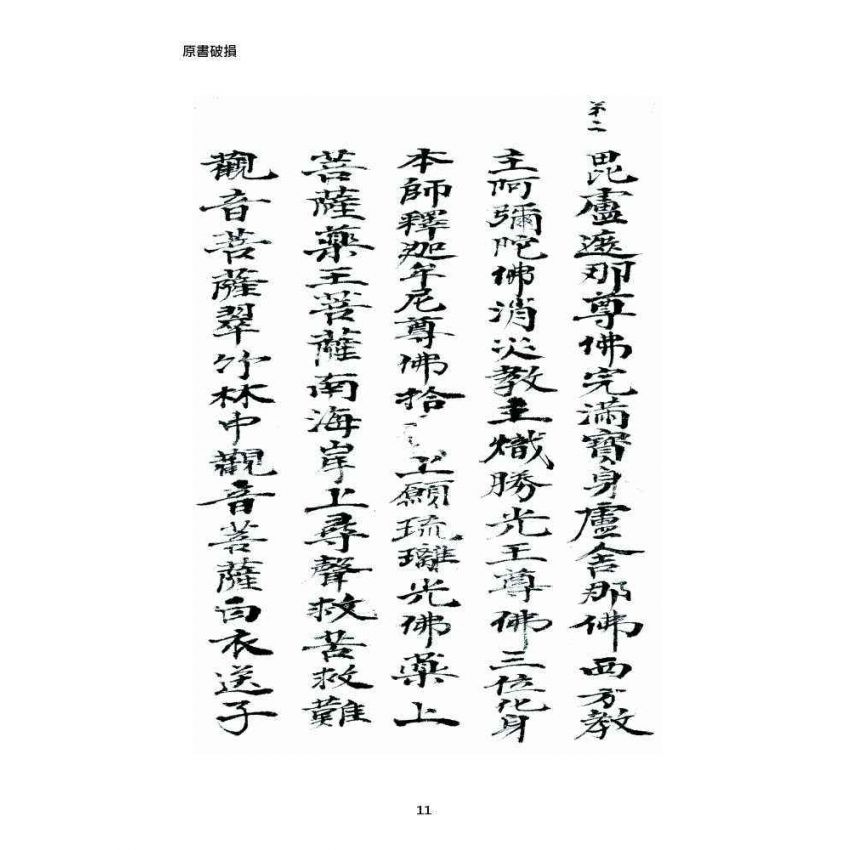 原書破損
第二
毘盧遮那尊佛完滿寳身盧舍那佛西方教
主阿彌陀佛消災教主熾勝光王尊佛三位化身
本師釋迦牟尼尊佛拾二上願琉璃光佛藥上
菩薩藥王菩薩南海岸上尋聲救苦救難
觀音菩薩翠竹林中觀音菩薩白衣送子
11